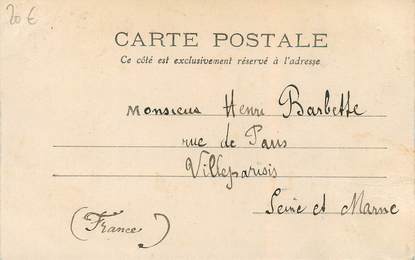 20 €
CARTE POSTALE
Ce côté est exclusivement réservé à l'adresse
Monsieur Henri Barbette
rue de Paris
Villeparisis
Seine et Marne
(France)